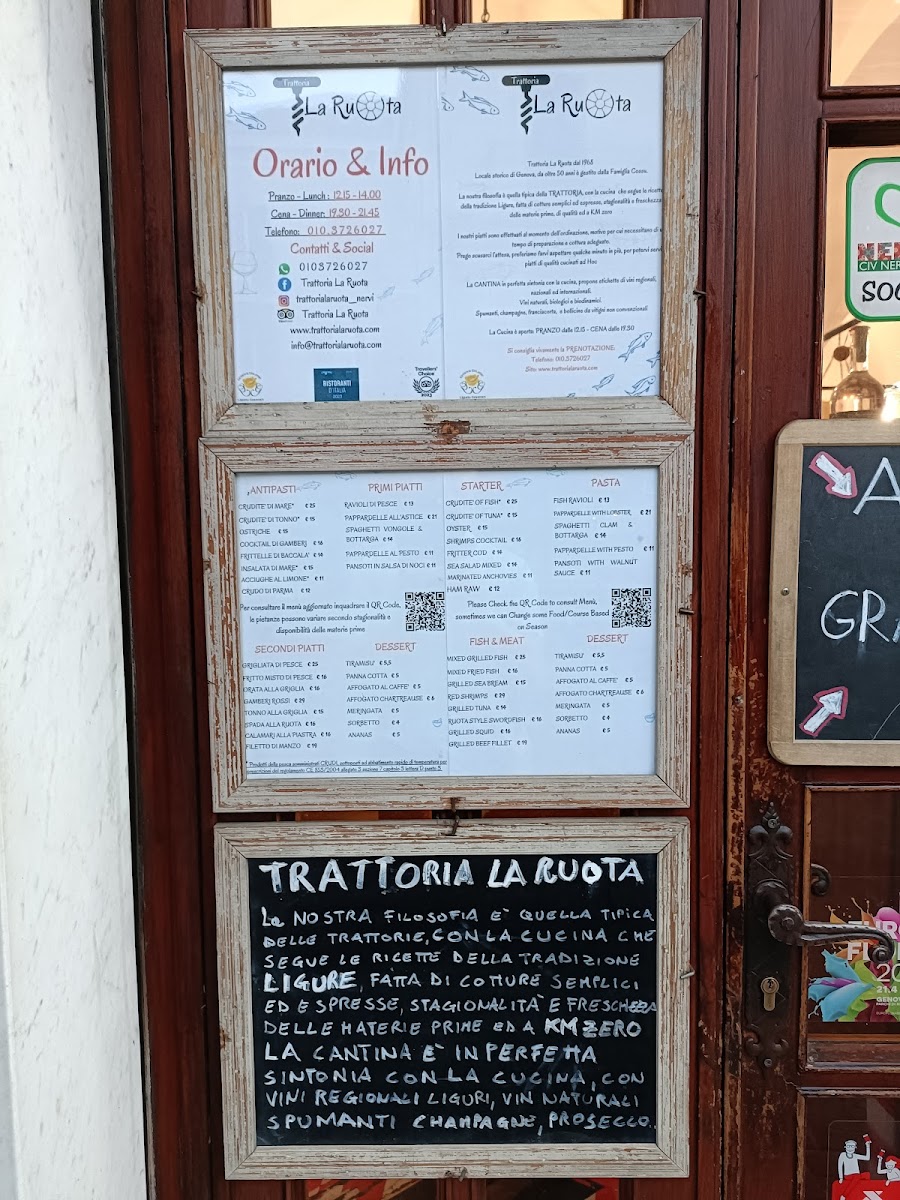 Trattoria
La Ruota
Orario & Info
Pranzo - Lunch : 12.15 - 14.00
Cena - Dinner: 19.30 - 21.45
Telefono: 010.3726027
Contatti & Social
0103726027
Trattoria La Ruota
trattorialaruota_nervi
Trattoria La Ruota
www.trattorialaruota.com
info@trattorialaruota.com
RISTORANTI
D'ITALIA
2023
Travellers'
Choice
2023
Trattoria
La Ruota
Trattoria La Ruota dal 1968
Locale storico di Genova, da oltre 50 anni è gestito dalla Famiglia
La nostra filosofia è quella tipica della TRATTORIA, con la cucina che segue le ricette
della tradizione Ligure, fatta di cotture semplici ed espresse, stagionalità e freschezza
delle materie prime, di qualità ed a KM zero
I nostri piatti sono effettuati al momento dell'ordinazione, motivo per cui necessitano di
tempo di preparazione e cottura adeguato.
Prego scusarci l'attesa, preferiamo farvi aspettare qualche minuto in più, per potervi servire
piatti di qualità cucinati ad Hoc
La CANTINA è in perfetta sintonia con la cucina, propone etichette di vini regionali,
nazionali ed internazionali.
Vini naturali, biologici e biodinamici.
Spumanti, champagne, franciacorta, e bollicine da vitigni non convenzionali
La Cucina è aperta: PRANZO dalle 12.15 - CENA dalle 19.30
Si consiglia vivamente la PRENOTAZIONE.
Telefono: 010.3726027
Sito: www.trattorialaruota.com
ANTIPASTI
CRUDITE' DI MARE* € 25
CRUDITE' DI TONNO* € 15
OSTRICHE € 15
COCKTAIL DI GAMBERI € 18
FRITTELLE DI BACCALA' € 14
INSALATA DI MARE* € 15
ACCIUGHE AL LIMONE* € 11
CRUDO DI PARMA € 12
PRIMI PIATTI
RAVIOLI DI PESCE € 13
PAPPARDELLE ALL'ASTICE € 21
SPAGHETTI VONGOLE &
BOTTARGA € 14
PAPPARDELLE AL PESTO € 11
PANSOTI IN SALSA DI NOCI € 11
Per consultare il menù aggiornato inquadrare il QR Code,
le pietanze possono variare secondo stagionalità e
disponibilità delle materie prime
SECONDI PIATTI
GRIGLIATA DI PESCE € 25
FRITTO MISTO DI PESCE € 16
ORATA ALLA GRIGLIA € 15
GAMBERI ROSSI € 29
TONNO ALLA GRIGLIA € 15
SPADA ALLA RUOTA € 16
CALAMARI ALLA PIASTRA € 16
FILETTO DI MANZO € 19
DESSERT
TIRAMISU' € 5,5
PANNA COTTA € 5
AFFOGATO AL CAFFE' € 5
AFFOGATO CHARTREAUSE € 6
MERINGATA € 5
SORBETTO € 4
ANANAS € 5
* Prodotti della pesca somministrati CRUDI, sottoposti ad abbattimento rapido di temperatura per
STARTER
CRUDITE OF FISH* € 25
CRUDITE OF TUNA* € 15
OYSTER € 15
SHRIMPS COCKTAIL € 18
FRITTER COD € 14
SEA SALAD MIXED € 14
MARINATED ANCHOVIES € 11
HAM RAW € 12
PASTA
FISH RAVIOLI € 13
PAPPARDELLE WITH LOBSTER € 21
SPAGHETTI CLAM &
BOTTARGA € 14
PAPPARDELLE WITH PESTO € 11
PANSOTI WITH WALNUT
SAUCE € 11
Please Check the QR Code to consult Menù,
sometimes we can Change some Food/Course Based
on Season
FISH & MEAT
MIXED GRILLED FISH € 25
MIXED FRIED FISH € 16
GRILLED SEA BREAM € 15
RED SHRIMPS € 29
GRILLED TUNA € 14
RUOTA STYLE SWORDFISH € 16
GRILLED SQUID € 16
GRILLED BEEF FILLET € 19
DESSERT
TIRAMISU' € 5,5
PANNA COTTA € 5
AFFOGATO AL CAFFE' € 5
AFFOGATO CHARTREAUSE € 6
MERINGATA € 5
SORBETTO € 4
ANANAS € 5
TRATTORIA LA RUOTA
La NOSTRA FILOSOFIA E' QUELLA TIPICA
DELLE TRATTORIE, CON LA CUCINA CHE
SEGUE LE RICETTE DELLA TRADIZIONE
LIGURE, FATTA DI COTTURE SEMPLICI
ED ESPRESSE, STAGIONALITÀ E FRESCHEZZA
DELLE MATERIE PRIME ED A KM ZERO
LA CANTINA È IN PERFETTA
SINTONIA CON LA CUCINA, CON
VINI REGIONALI LIGURI, VIN NATURALI
SPUMANTI CHAMPAGNE, PROSECCO.
CIV NER
SOC
A
GRA